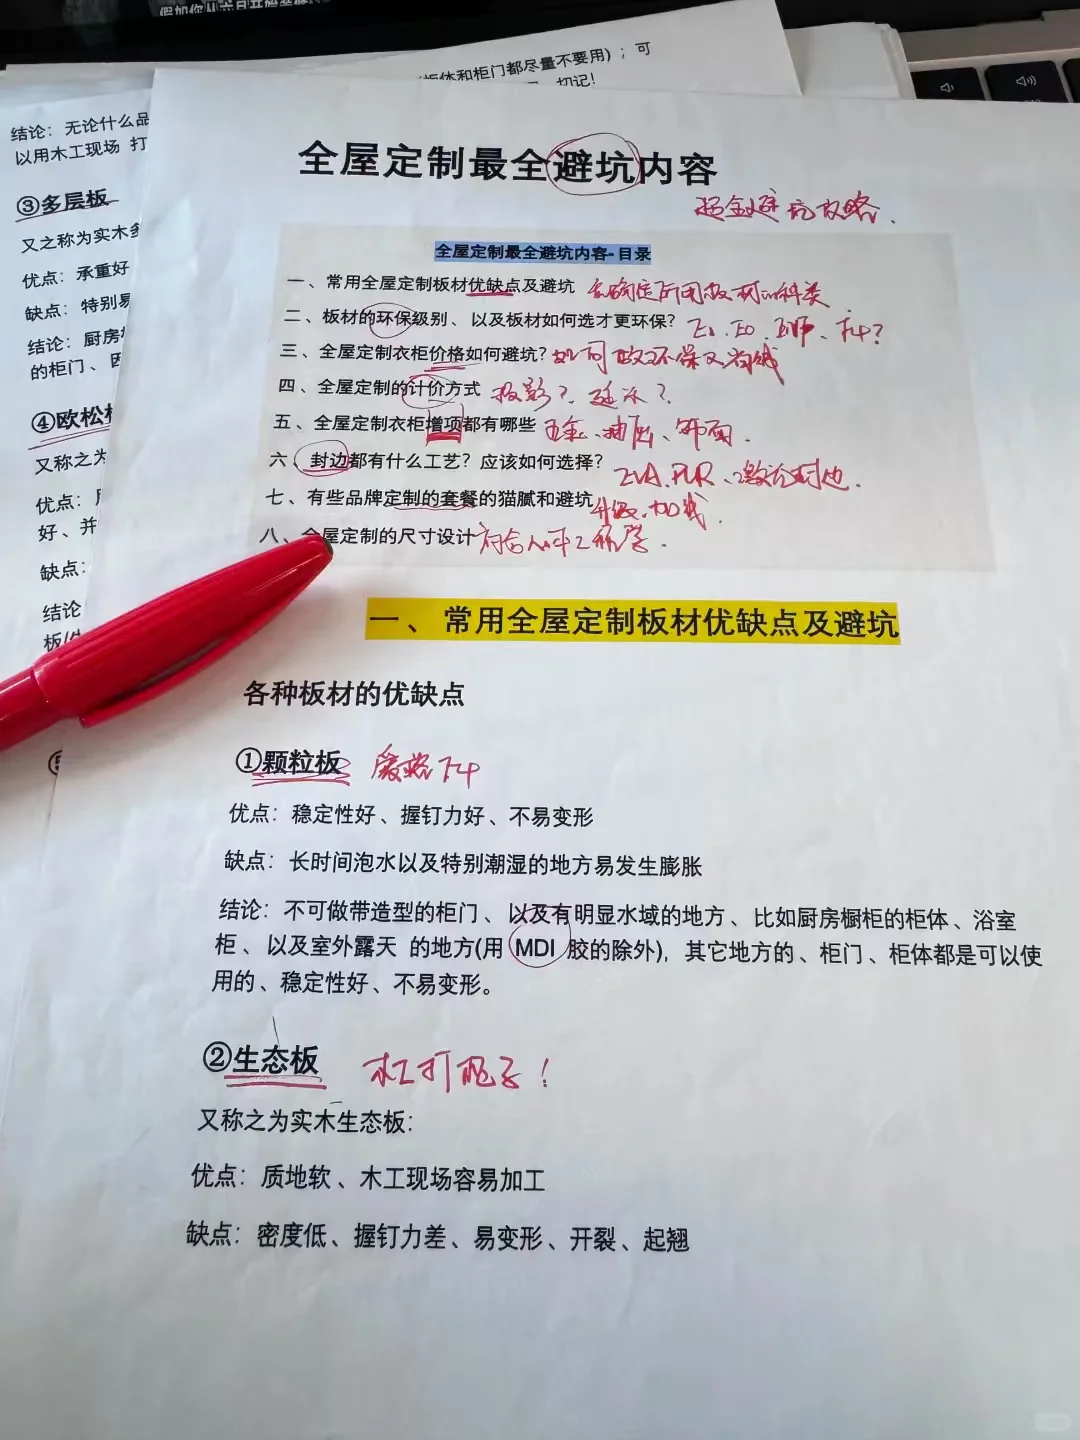 假如你从六月开始装修
柜体和柜门都尽量不要用）；可
切记！
结论：无论什么品
以用木工现场 打
③多层板
又之称为实木多
优点：承重好
缺点：特别易
结论：厨房
的柜门、因
④欧松板
又称之为
优点：
好、并
缺点：
结论
全屋定制最全避坑内容
超全避坑攻略.
全屋定制最全避坑内容-目录
一、常用全屋定制板材优缺点及避坑
二、板材的环保级别、以及板材如何选才更环保？ E1、E0、ENF、F4?
三、全屋定制衣柜价格如何避坑？如何既环保又省钱
四、全屋定制的计价方式 投影？延米？
五、全屋定制衣柜增项都有哪些 五金、抽屉、饰面.
六、封边都有什么工艺？应该如何选择？ EVA.PUR、激光封边.
七、有些品牌定制的套餐的猫腻和避坑 升级.加钱.
八、全屋定制的尺寸设计 符合人体工程学.
一、常用全屋定制板材优缺点及避坑
各种板材的优缺点
①颗粒板 爱格 F4
优点：稳定性好、握钉力好、不易变形
缺点：长时间泡水以及特别潮湿的地方易发生膨胀
结论：不可做带造型的柜门、以及有明显水域的地方、比如厨房橱柜的柜体、浴室
柜、以及室外露天 的地方(用 MDI 胶的除外)，其它地方的、柜门、柜体都是可以使
用的、稳定性好、不易变形。
②生态板 木工打柜子！
又称之为实木生态板：
优点：质地软、木工现场容易加工
缺点：密度低、握钉力差、易变形、开裂、起翘